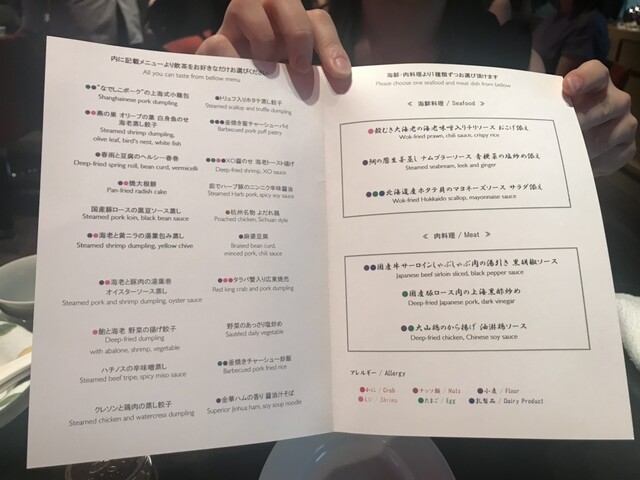 内に記載メニューより飲茶をお好きなだけお選びください
All you can taste from bellow menu
"なでしこポーク"の上海式小籠包
Shanghainese pork dumpling
燕の巣 オリーブの葉 白身魚のせ
海老蒸し餃子
Steamed shrimp dumpling,
olive leaf, bird's nest, white fish
春雨と豆腐のヘルシー春巻
Deep-fried spring roll, bean curd, vermicelli
焼大根餅
Pan-fried radish cake
国産豚ロースの黒豆ソース蒸し
Steamed pork loin, black bean sauce
海老と黄ニラの湯葉包み蒸し
Steamed shrimp dumpling, yellow chive
海老と豚肉の湯葉巻
オイスターソース蒸し
Steamed pork and shrimp dumpling, oyster sauce
鮑と海老 野菜の揚げ餃子
Deep-fried dumpling
with abalone, shrimp, vegetable
ハチノスの辛味噌蒸し
Steamed beef tripe, spicy miso sauce
クレソンと鶏肉の蒸し餃子
Steamed chicken and watercress dumpling
トリュフ入りホタテ蒸し餃子
Steamed scallop and truffle dumpling
釜焼き蜜チャーシューパイ
Barbecued pork puff pastry
XO醤のせ 海老トースト揚げ
Deep-fried shrimp, XO sauce
茹でハーブ豚のニンニク辛味醤油
Steamed Harb pork, spicy soy sauce
杭州名物 よだれ鶏
Poached chicken, Sichuan style
麻婆豆腐
Braised bean curd,
minced pork, chili sauce
タラバ蟹入り広東焼売
Red king crab and pork dumpling
野菜のあっさり塩炒め
Sautéed daily vegetable
釜焼きチャーシュー炒飯
Barbecued pork fried rice
金華ハムの香り 醤油汁そば
Superior Jinhua ham, soy soup noodle
海鮮・肉料理より1種類ずつお選び頂けます
Please choose one seafood and meat dish from bellow
≪ 海鮮料理 / Seafood ≫
殻むき大海老の海老味噌入りチリソース おこげ添え
Wok-fried prawn, chili sauce, crispy rice
鯛の葱生姜蒸し ナムプラーソース 青梗菜の塩炒め添え
Steamed seabream, leek and ginger
北海道産ホタテ貝のマヨネーズソース サラダ添え
Wok-fried Hokkaido scallop, mayonnaise sauce
≪ 肉料理 / Meat ≫
国産牛サーロインしゃぶしゃぶ肉の湯引き 黒胡椒ソース
Japanese beef sirloin sliced, black pepper sauce
国産豚ロース肉の上海黒酢炒め
Deep-fried Japanese pork, dark vinegar
大山鶏のから揚げ 油淋鶏ソース
Deep-fried chicken, Chinese soy sauce
アレルギー / Allergy
かに / Crab ナッツ類 / Nuts 小麦 / Flour
えび / Shrimp たまご / Egg 乳製品 / Dairy Product